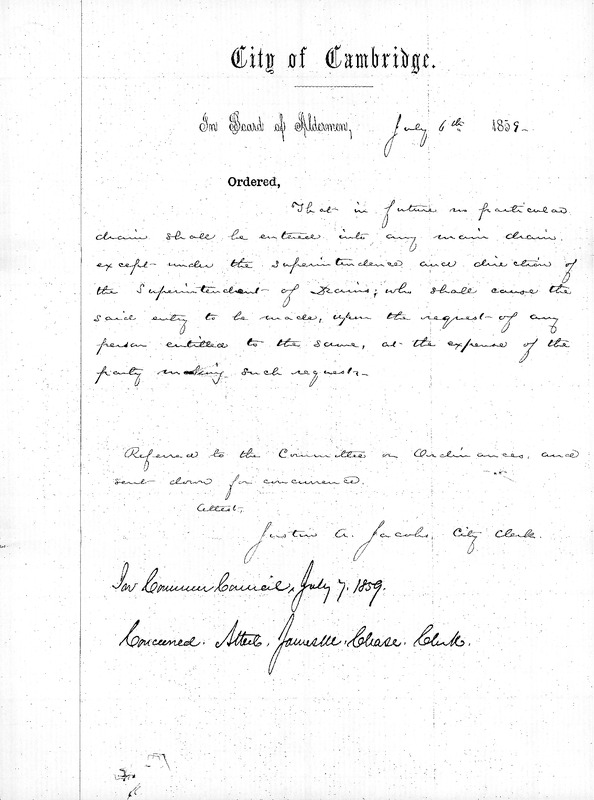 City of Cambridge.
In Board of Aldermen, July 6th 1859-
Ordered,
That in future no particular
drain shall be entered into any main drain,
except under the superintendence and direction of
the Superintendent of Drains; who shall cause the
said entry to be made, upon the request of any
person entitled to the same, at the expense of the
party making such request-
Referred to the Committee on Ordinances, and
sent down for concurrence.
Attest,
Justin A. Jacobs, City Clerk.
In Common Council, July 7. 1859.
Concurred. Attest, James M. Chase. Clerk.